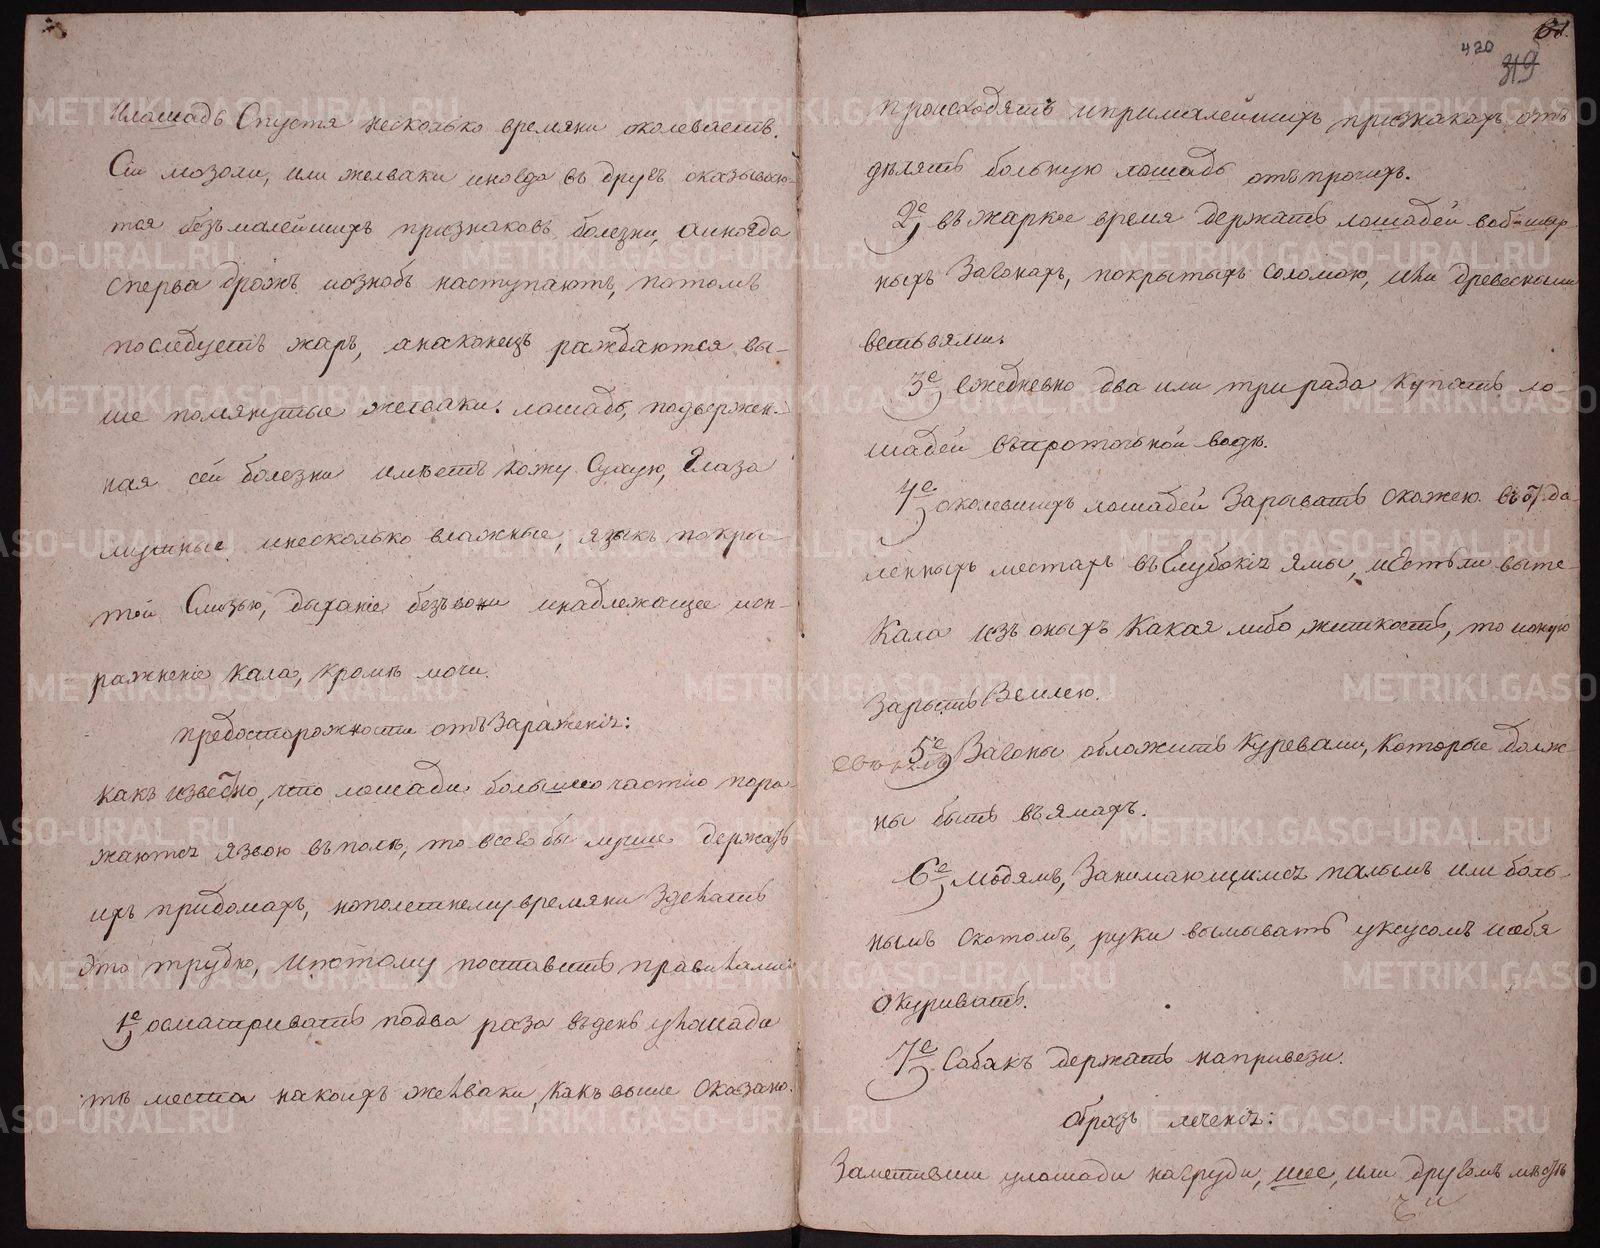 илошадь Спустя несколько времяни околеваетъ.
Сіи мозоли, или желваки иногда въ другъ оказываю-
тся безъ малейшихъ признаковъ болезни, аиногда
сперва дрожъ иознобъ наступаютъ, потомъ
последуетъ жаръ, анаконецъ раждаются вы-
ше помянутые желваки. лошадь, подвержен-
ная сей болезни имѣетъ кожу Сухую, Глаза
мутные инесколько влажные, языкъ покры-
той Слизью, дыханіе безъвони инадлежащее исп-
ражненіе Кала, Кромѣ мочи.
предосторожности отъ Зараженія:
какъ известно, что лошади большею частію пора-
жаются язвою въполѣ, то всегобы лучше держать
ихъ придомахъ, нополетнему времяни Зделать
Это трудно, ипотому поставить правилами:
1е осматривать подва раза въдень улошади
тѣ места накоихъ желваки, Какъвыше Сказано.
61.
420
319
происходятъ ипрималейшихъ признакахъ отъ
делять больную лошадь отъпрочихъ.
2е въжаркое время держать лошадей вобшир-
ныхъ Загонахъ, покрытыхъ Соломою, или древесными
ветьвями.
3е ежедневно два или три раза Купать ло-
шадей въпроточной водѣ.
4е околевшихъ лошадей Зарывать скожею въотда-
ленныхъ местахъ въГлубокія Ямы, иЕстьли выте-
Кала изъ оныхъ Какая либо житкость, то ионую
Зарыть Землею.
5е Загоны обложить Куревами, Которые долж-
ны быть въямахъ.
6е людямъ, Занимающимся палымъ или боль-
нымъ Скотомъ, руки вымывать уксусомъ исебя
Окуривать.
7е Собакъ держать напривези.
Образъ леченія:
Заметивши улошади нагруди, шее, или другомъ месте